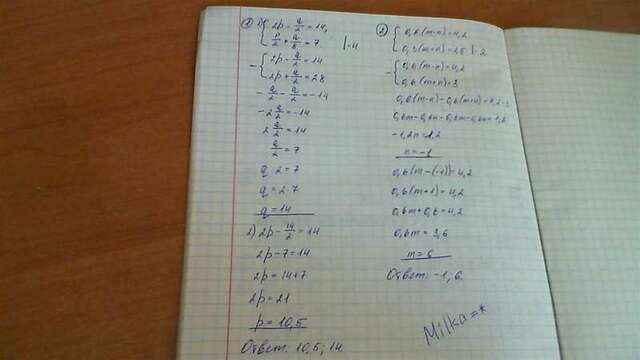 ① 1) { 2p - q/2 = 14,
p/2 + q/8 = 7 | · 4
- { 2p - q/2 = 14
2p + q/2 = 28
- q/2 - q/2 = -14
-2 q/2 = -14
2 q/2 = 14
q/2 = 7
q : 2 = 7
q = 2 · 7
q = 14
2) 2p - 14/2 = 14
2p - 7 = 14
2p = 14 + 7
2p = 21
p = 10,5
Ответ: 10,5; 14.
② { 0,6(m-n) = 4,2
0,3(m+n) = 1,5 | · 2
- { 0,6(m-n) = 4,2
0,6(m+n) = 3
0,6(m-n) - 0,6(m+n) = 4,2 - 3
0,6m - 0,6n - 0,6m - 0,6n = 1,2
-1,2n = 1,2
n = -1
0,6(m-(-1)) = 4,2
0,6(m+1) = 4,2
0,6m + 0,6 = 4,2
0,6m = 3,6
m = 6
Ответ: -1; 6.
Milka =*